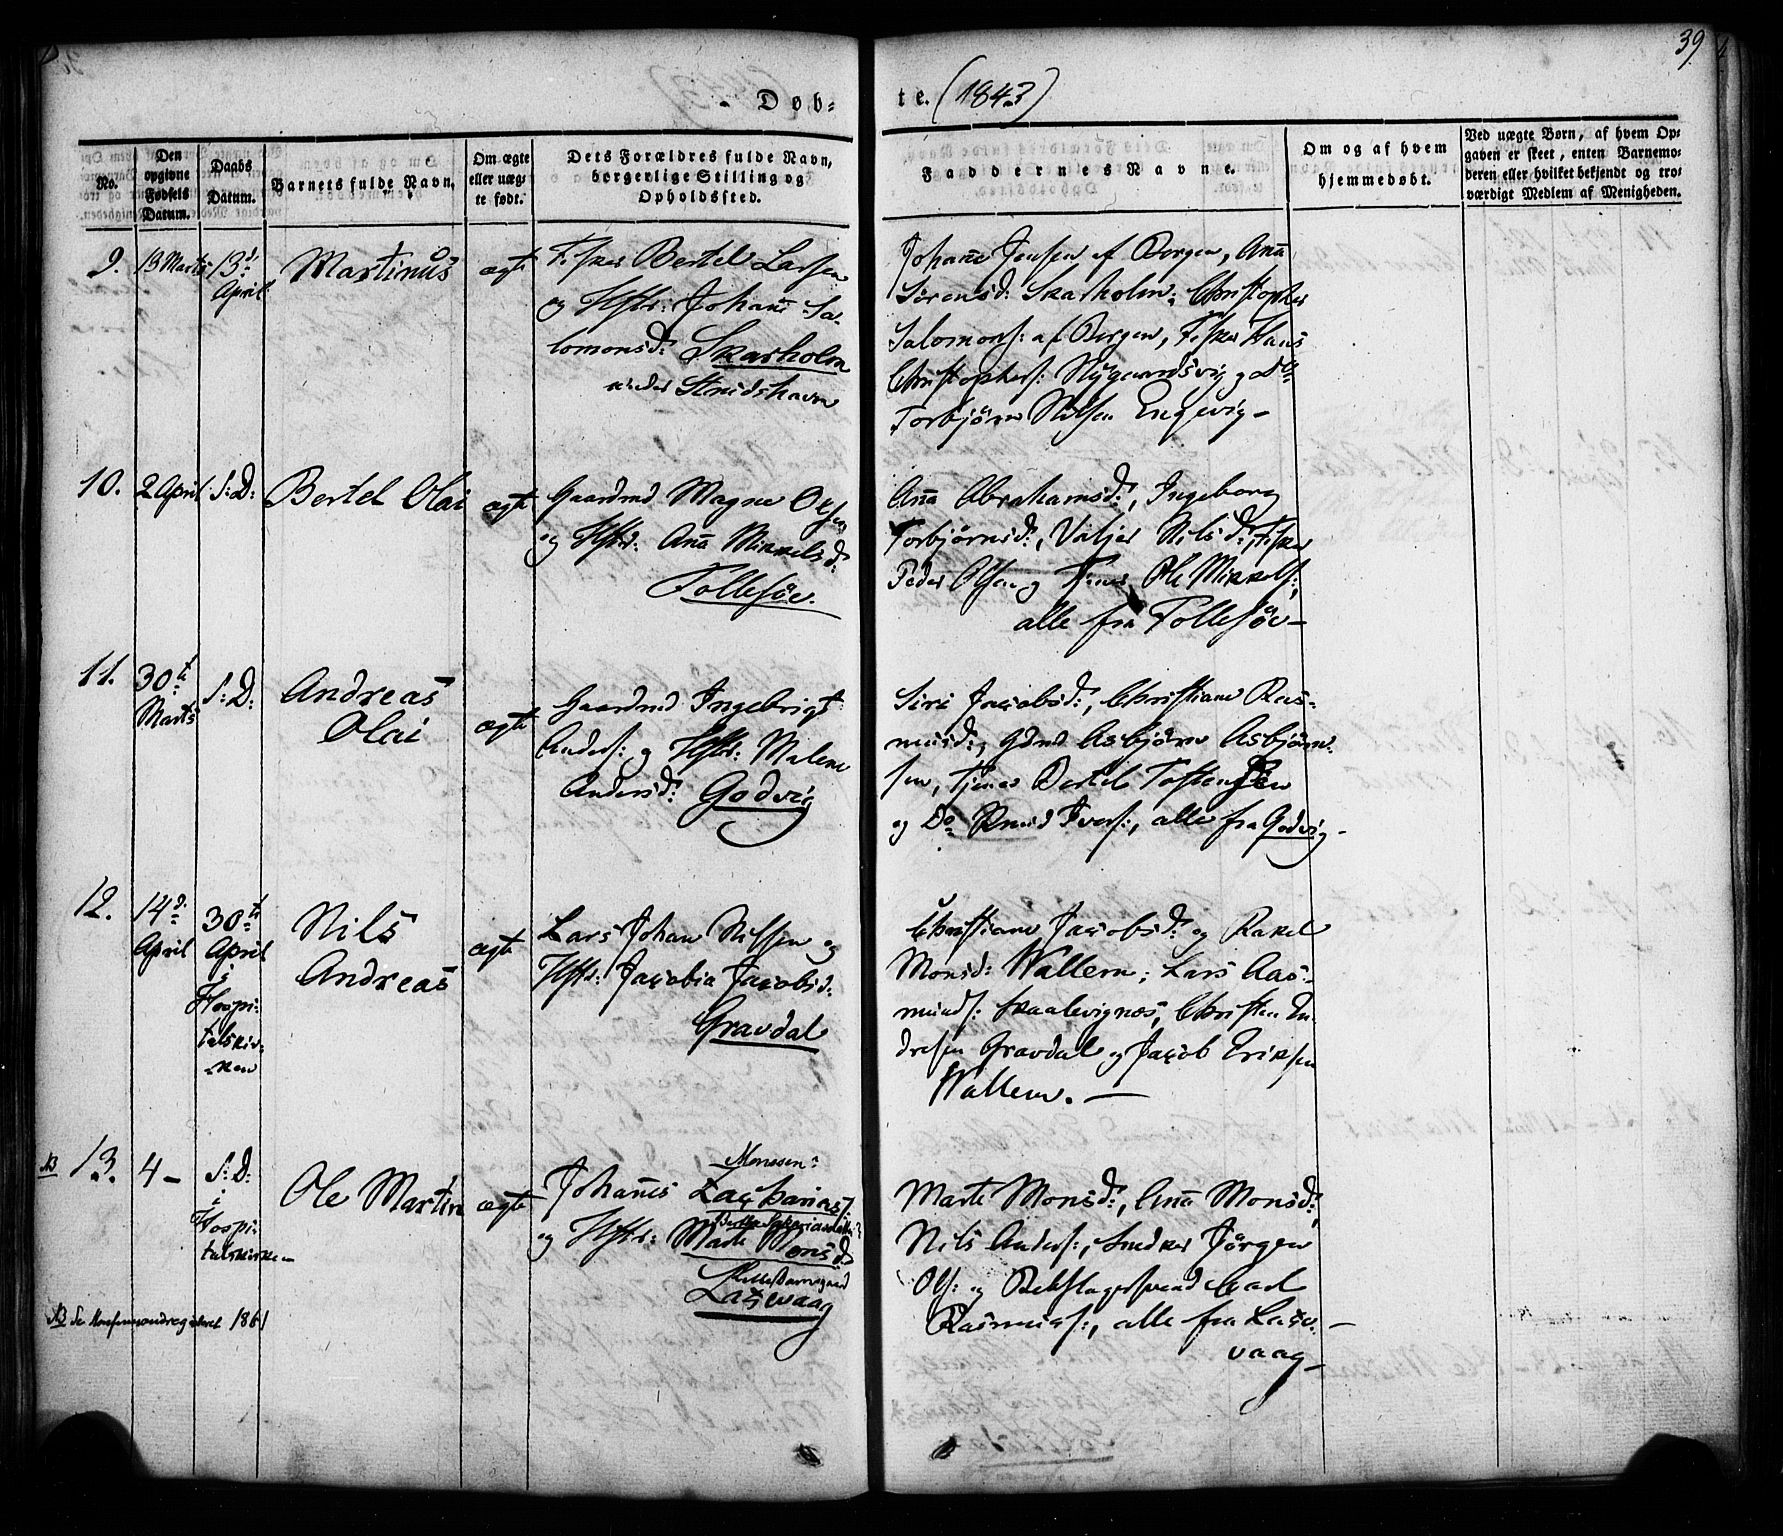 39
Døb-
te. (1843)
No.
Den opgivne Fødsels Datum.
Daabs Datum.
Barnets fulde Navn.
Om ægte eller uægte født.
Dets Forældres fulde Navn, borgerlige Stilling og Opholdssted.
Faddernes Navne.
Om og af hvem hjemmedøbt.
Ved uægte Børn, af hvem Op-
gaven er skeet, enten Barnemo-
deren eller hvilket bekjendt og tro-
værdigt Medlem af Menigheden.
9.
13 Marts
13d:
April
Martinus
ægte
Fisker Bertel Larsen
og Hstr: Johane Sa-
lomonsd: Skarholm
under Strudshavn
Johane Jensen af Bergen, Anna
Sørensd: Skarholm; Christopher
Salomons: af Bergen, Fisker Hans
Christophers: Nygaardsvig og Do
Torbjørn Nilsen Engevig-
10.
2 April
S: D:
Bertel Olai
ægte
Gaardmd Magne Olsen
og Hstr: Anna Mikkelsd:
Follesøe.
Anna Abrahamsd:, Ingeborg
Torbjørnsd:, Nilsd:, Fisker
Peder Olsen og Tjener Ole Mikkels:,
alle fra Follesøe-
11.
30te
Marts
S: D:
Andreas
Olai
ægte
Gaardmd Ingebrigt
Anders: og Hstr: Malene
Andersd: Godvig
Siri Jacobsd:, Christiane Ras-
musd:, Gdmd Asbjørn Asbjørn-
sen, Tjener Bertel Tostensen
og Do Knud Ivers:, alle fra Godvig-
12.
14d:
April
30te
April
i
Hospi-
talskir-
ken
Nils
Andreas
ægte
Lars Johan Nilsen og
Hstr: Jacobia Jacobsd:
Gravdal
Christiane Jacobsd: og Rakel
Monsd: Wallem; Lars Aas-
munds: Skaalevignes, Christen En-
dresen Gravdal og Jacob Eriksen
Wallem.-
NB 13.
4-
S: D:
i
Hospi-
talskirken-
Ole Martin
ægte
Monssen:
Johanes Zacharias:
og Hstr: Marte Monsd:
Laxevaag
Marte Monsd:, Anna Monsd:,
Nils Anders:, Smeker Jørgen
Ols: og Rebslagersvend Carl
Rasmus:, alle fra Laxe-
vaag-
NB Se 1861